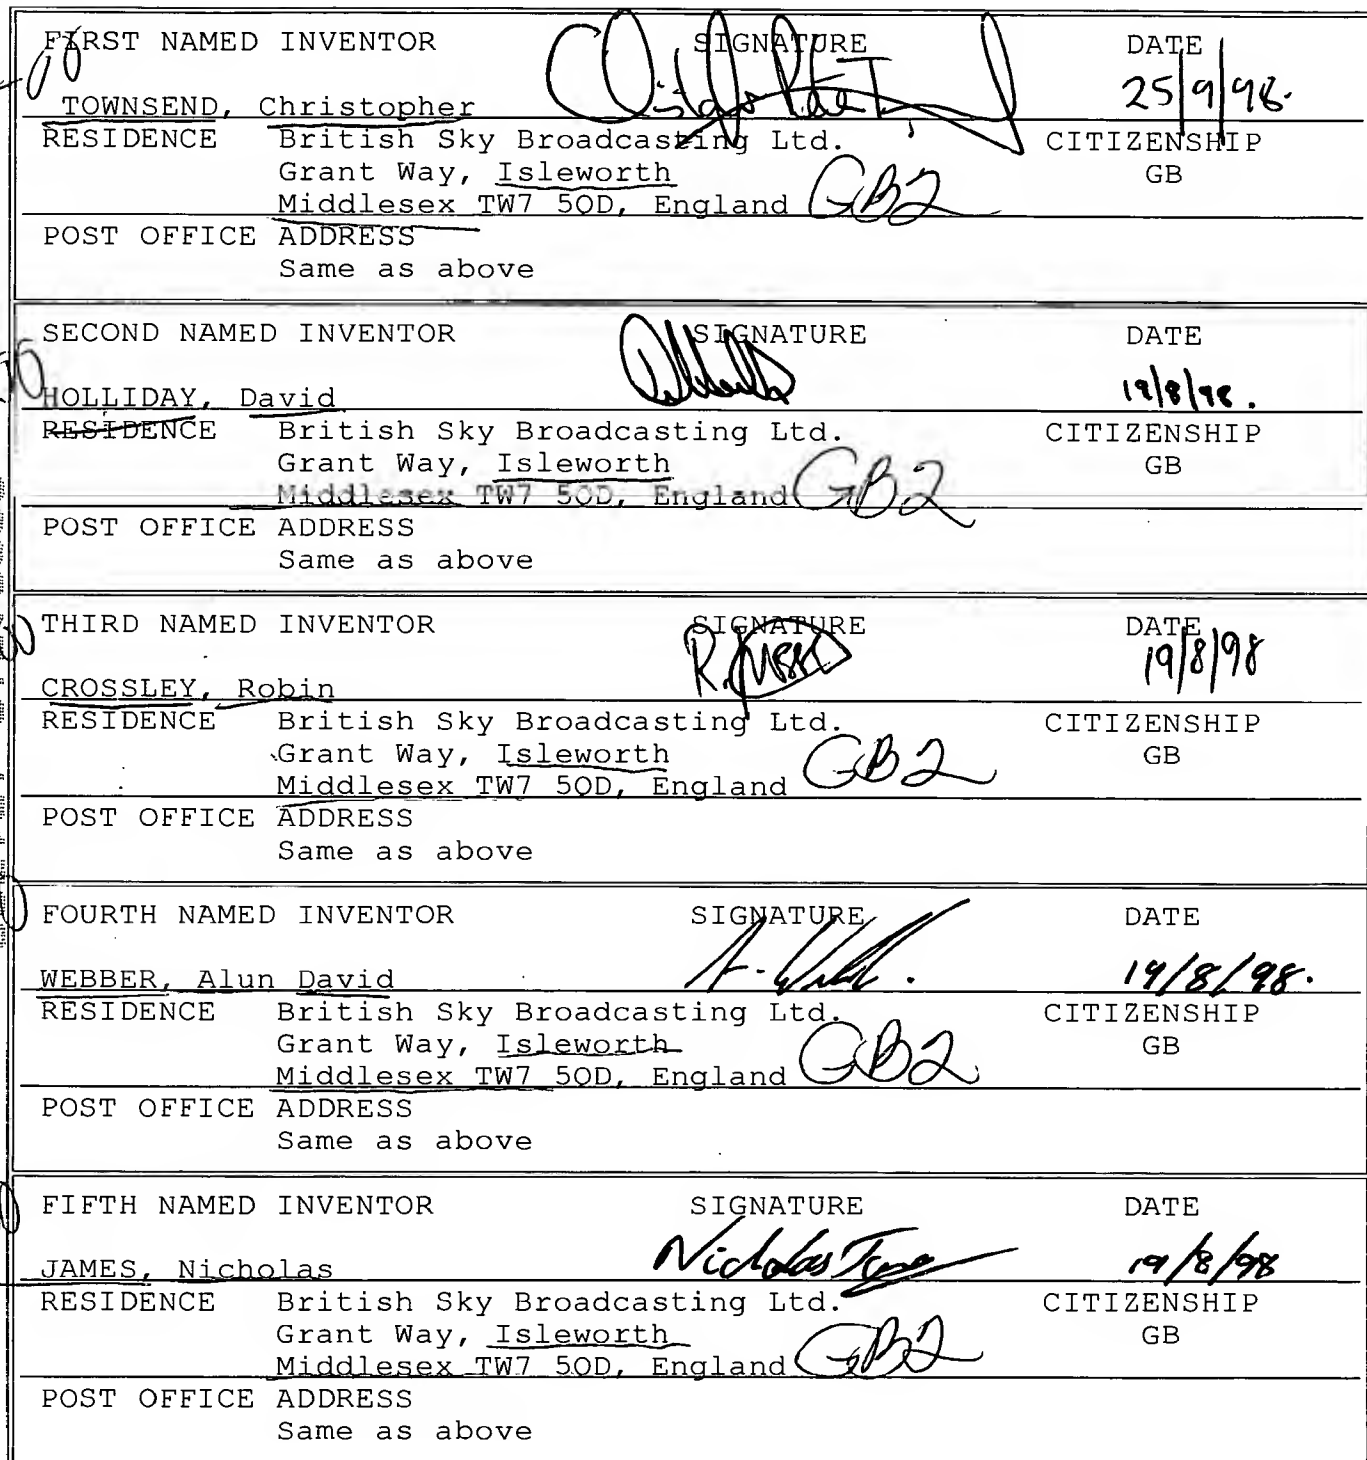 FIRST NAMED INVENTOR SIGNATURE DATE
25/9/98.
TOWNSEND, Christopher
RESIDENCE British Sky Broadcasting Ltd. CITIZENSHIP
Grant Way, Isleworth GB
Middlesex TW7 5QD, England GB2
POST OFFICE ADDRESS
Same as above
SECOND NAMED INVENTOR SIGNATURE DATE
HOLLIDAY, David 19/8/98.
RESIDENCE British Sky Broadcasting Ltd. CITIZENSHIP
Grant Way, Isleworth GB
Middlesex TW7 5QD, England GB2
POST OFFICE ADDRESS
Same as above
THIRD NAMED INVENTOR SIGNATURE DATE
19/8/98
CROSSLEY, Robin R.
RESIDENCE British Sky Broadcasting Ltd. CITIZENSHIP
Grant Way, Isleworth GB
Middlesex TW7 5QD, England GB2
POST OFFICE ADDRESS
Same as above
FOURTH NAMED INVENTOR SIGNATURE DATE
WEBBER, Alun David A. 19/8/98.
RESIDENCE British Sky Broadcasting Ltd. CITIZENSHIP
Grant Way, Isleworth GB
Middlesex TW7 5QD, England GB2
POST OFFICE ADDRESS
Same as above
FIFTH NAMED INVENTOR SIGNATURE DATE
JAMES, Nicholas Nicholas James 19/8/98
RESIDENCE British Sky Broadcasting Ltd. CITIZENSHIP
Grant Way, Isleworth GB
Middlesex TW7 5QD, England GB2
POST OFFICE ADDRESS
Same as above